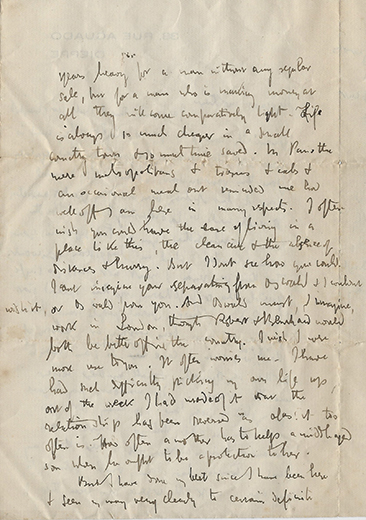 years heavy for a man without any regular
sale, but for a man who is making money at
all they will come comparatively light. Life
is always so much cheaper in a small
country town & so much time saved. In Paris the
mere metropolitains & trams & cabs &
an occasional meal out reminded me how
well off I am here in many respects. I often
wish you could have the ease of living in a
place like this, the clean air & the absence of
distances & hurry. But I don't see how you could.
I can't imagine your separating from Oswald & I wouldn't
wish it, or Os would from you. And Oswald must, I imagine,
work in London, though Robert & would
both be better off in the country. I wish I were
more use to you, it often worries me. I have
had such difficulty picking my own life up,
out of the I had made of it that the
relationship has been reversed as alas! it too
often is. How often a mother has to help a middleaged
son when he ought to be a protection to her.
But I have done my best since I have been here
& seen my way very clearly to certain